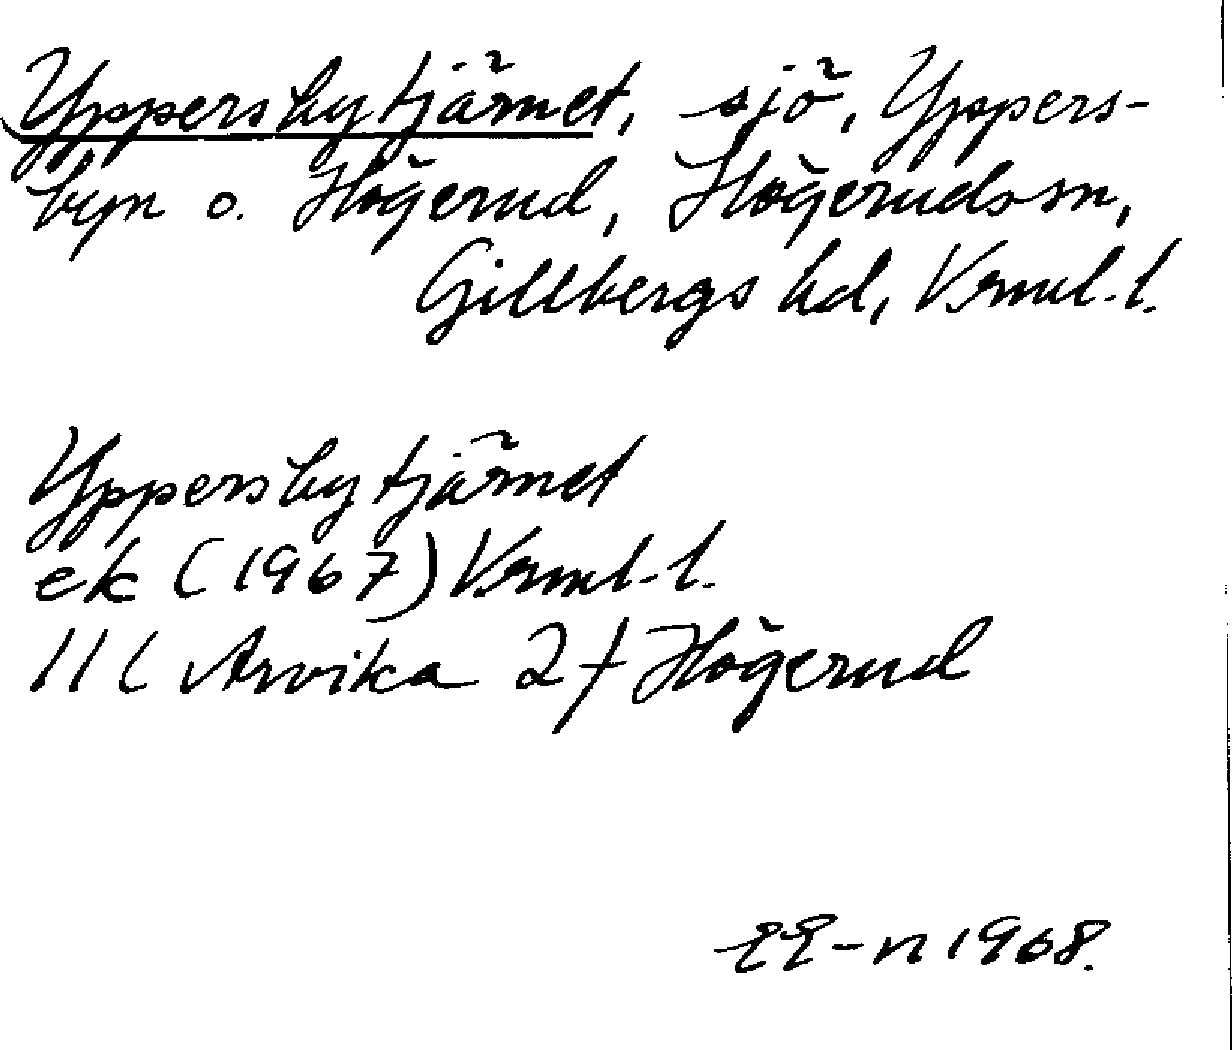 Yppersbytjärnet, sjö, Yppers-
byn o. Högerud, Högeruds sn,
Gillbergs hd, Vrml. l.
Yppersbytjärnet
ek (1967) Vrml. l.
11C Arvika 2f Högerud
EE-n 1968.